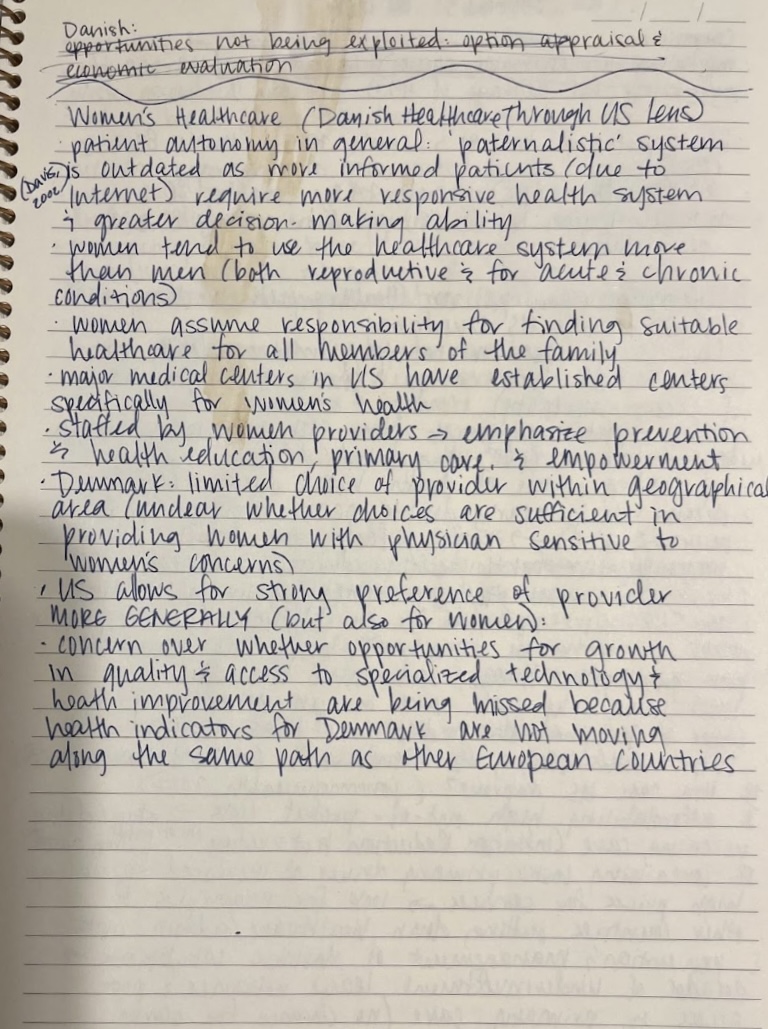 Danish:
opportunities not being exploited: option appraisal &
economic evaluation
Women's Healthcare (Danish Healthcare Through US Lens)
patient autonomy in general: 'paternalistic' system
(Davis, 2002) is outdated as more informed patients (due to
Internet) require more responsive health system
& greater decision-making ability
· women tend to use the healthcare system more
than men (both reproductive & for acute & chronic
conditions)
· women assume responsibility for finding suitable
healthcare for all members of the family
· major medical centers in US have established centers
specifically for women's health
· staffed by women providers → emphasize prevention
& health education, primary care, & empowerment
· Denmark: limited choice of provider within geographical
area (unclear whether choices are sufficient in
providing women with physician sensitive to
women's concerns)
· US allows for strong preference of provider
MORE GENERALLY (but also for women):
· concern over whether opportunities for growth
in quality & access to specialized technology &
heath improvement are being missed because
health indicators for Denmark are not moving
along the same path as other European Countries